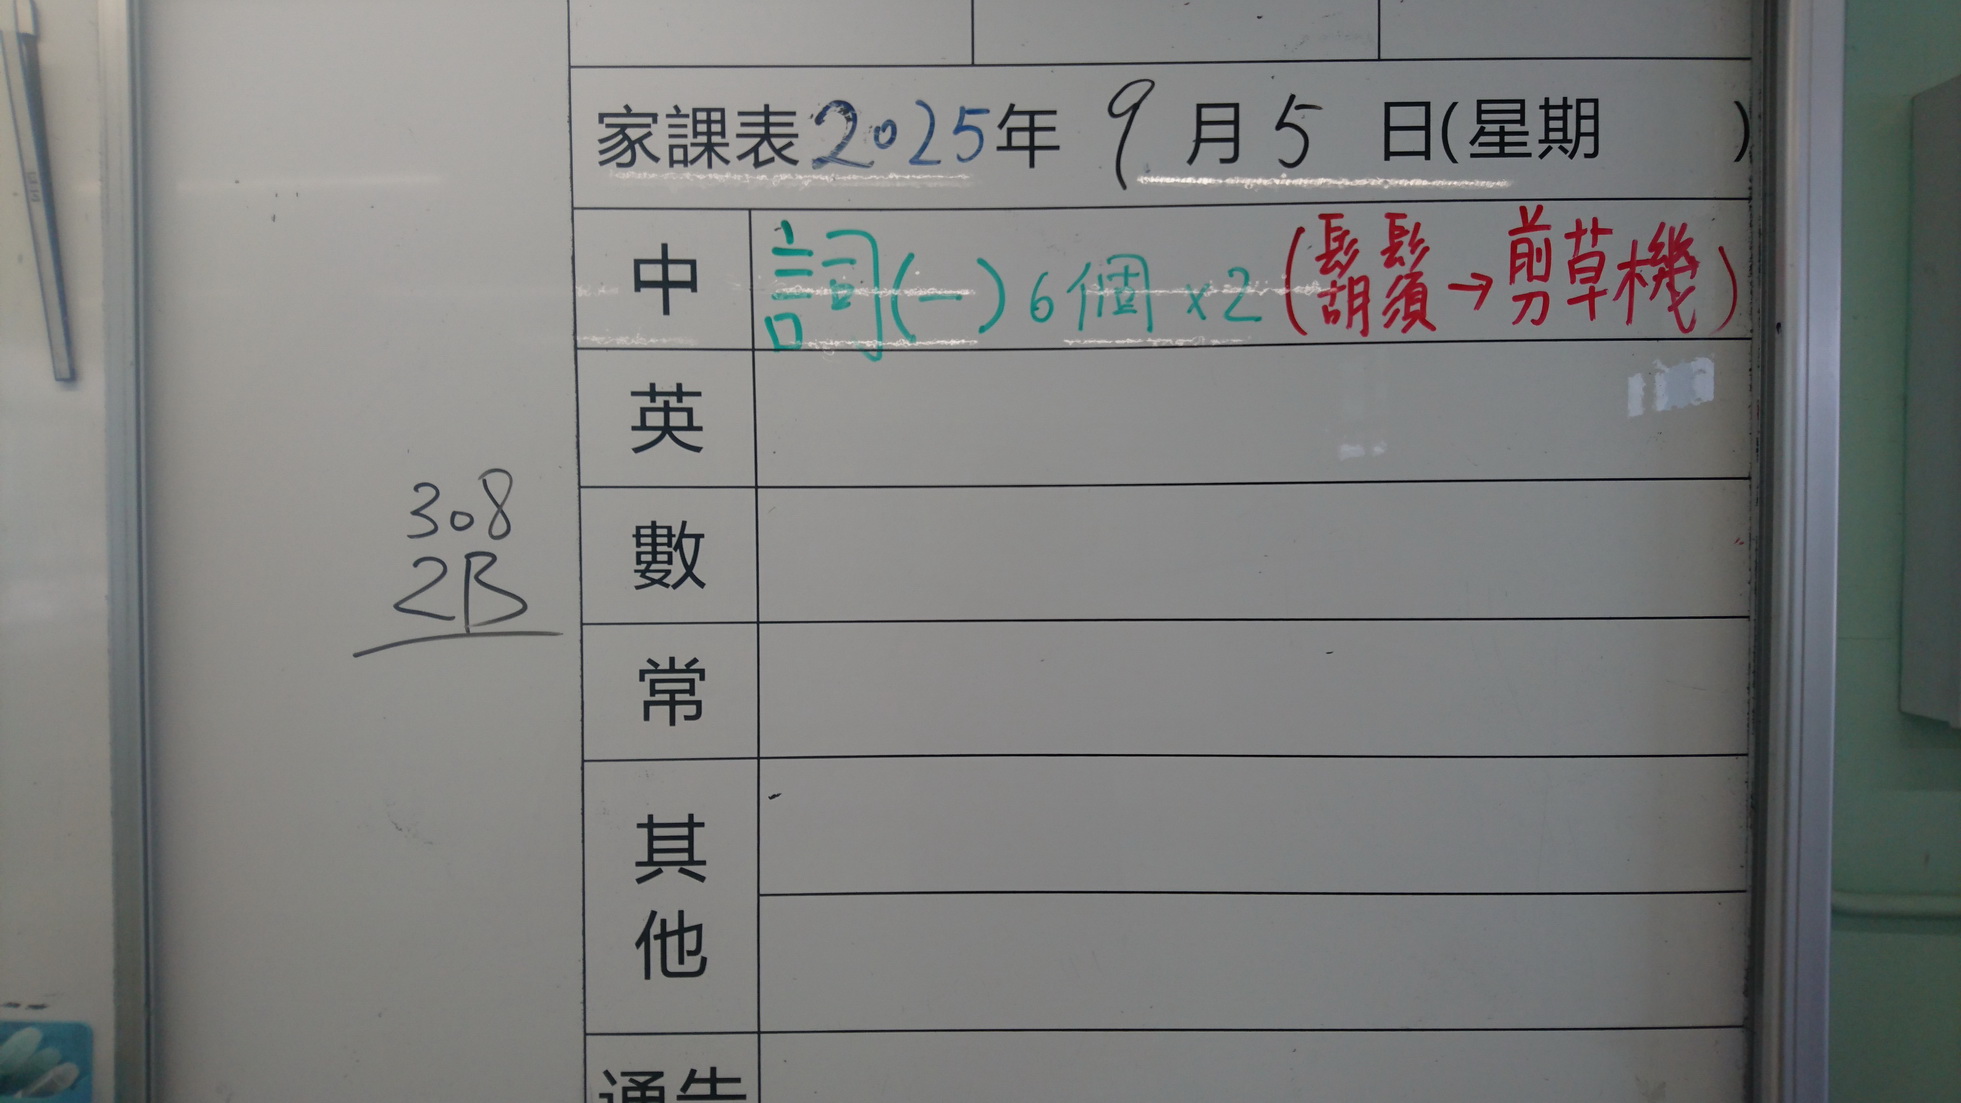 家課表2025年 9月5日(星期 )
中 詞(一)6個×2(鬍鬚→剪草機)
英
308
數
2B
常
其他
通告